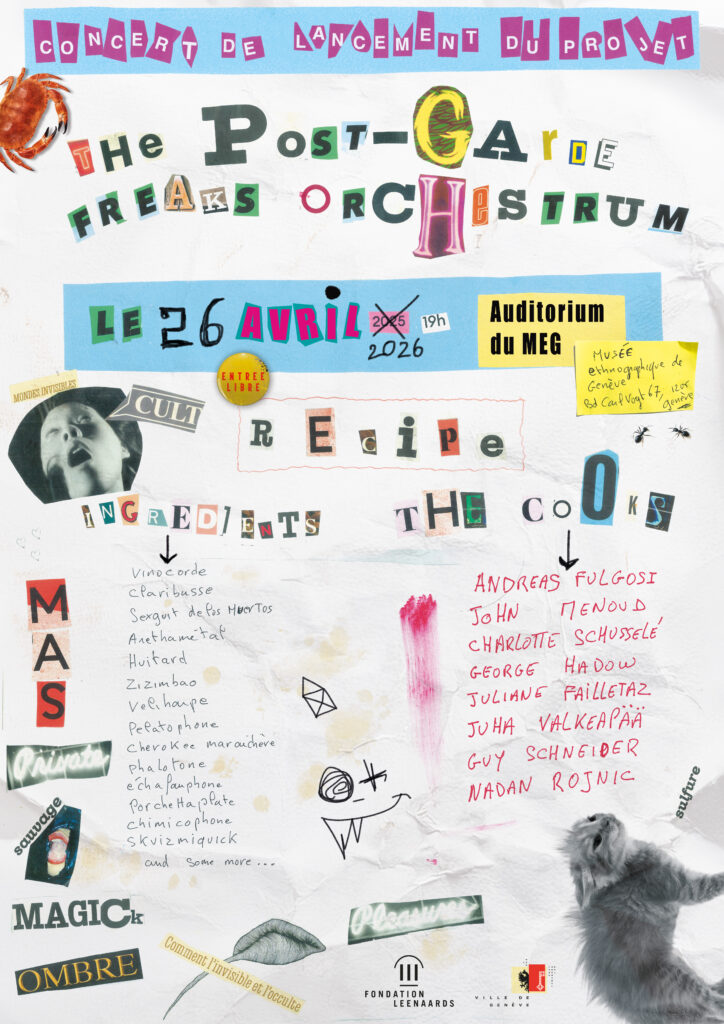 CONCERT DE LANCEMENT DU PROJET
THE POST-GARDE
FREAKS ORCHESTRUM
LE 26 AVRIL 2025 19h
2026
Auditorium
du MEG
MUSÉE
ethnographique de
Genève
Bd Carl Vogt 67, 1205
genève
ENTRÉE
LIBRE
MONDES INVISIBLES
CULT
RECIPE
INGREDIENTS
THE COOKS
Vinocorde
Claribasse
Sexguit de los Muertos
Anethamétal
Huitard
Zizimbao
Veliharpe
Pelatophone
Cherokee maraichère
phalotone
échafauphone
Porchettaplate
chimicophone
Skuizmiquick
and some more...
ANDREAS FULGOSI
JOHN MENOUD
CHARLOTTE SCHUSSELÉ
GEORGE HADOW
JULIANE FAILLETAZ
JUHA VALKEAPÄÄ
GUY SCHNEIDER
NADAN ROJNIC
MAS
Private
sauvage
MAGICk
OMBRE
Comment l'invisible et l'occulte
Pleasures
sulfure
FONDATION
LEENAARDS
VILLE DE
GENÈVE